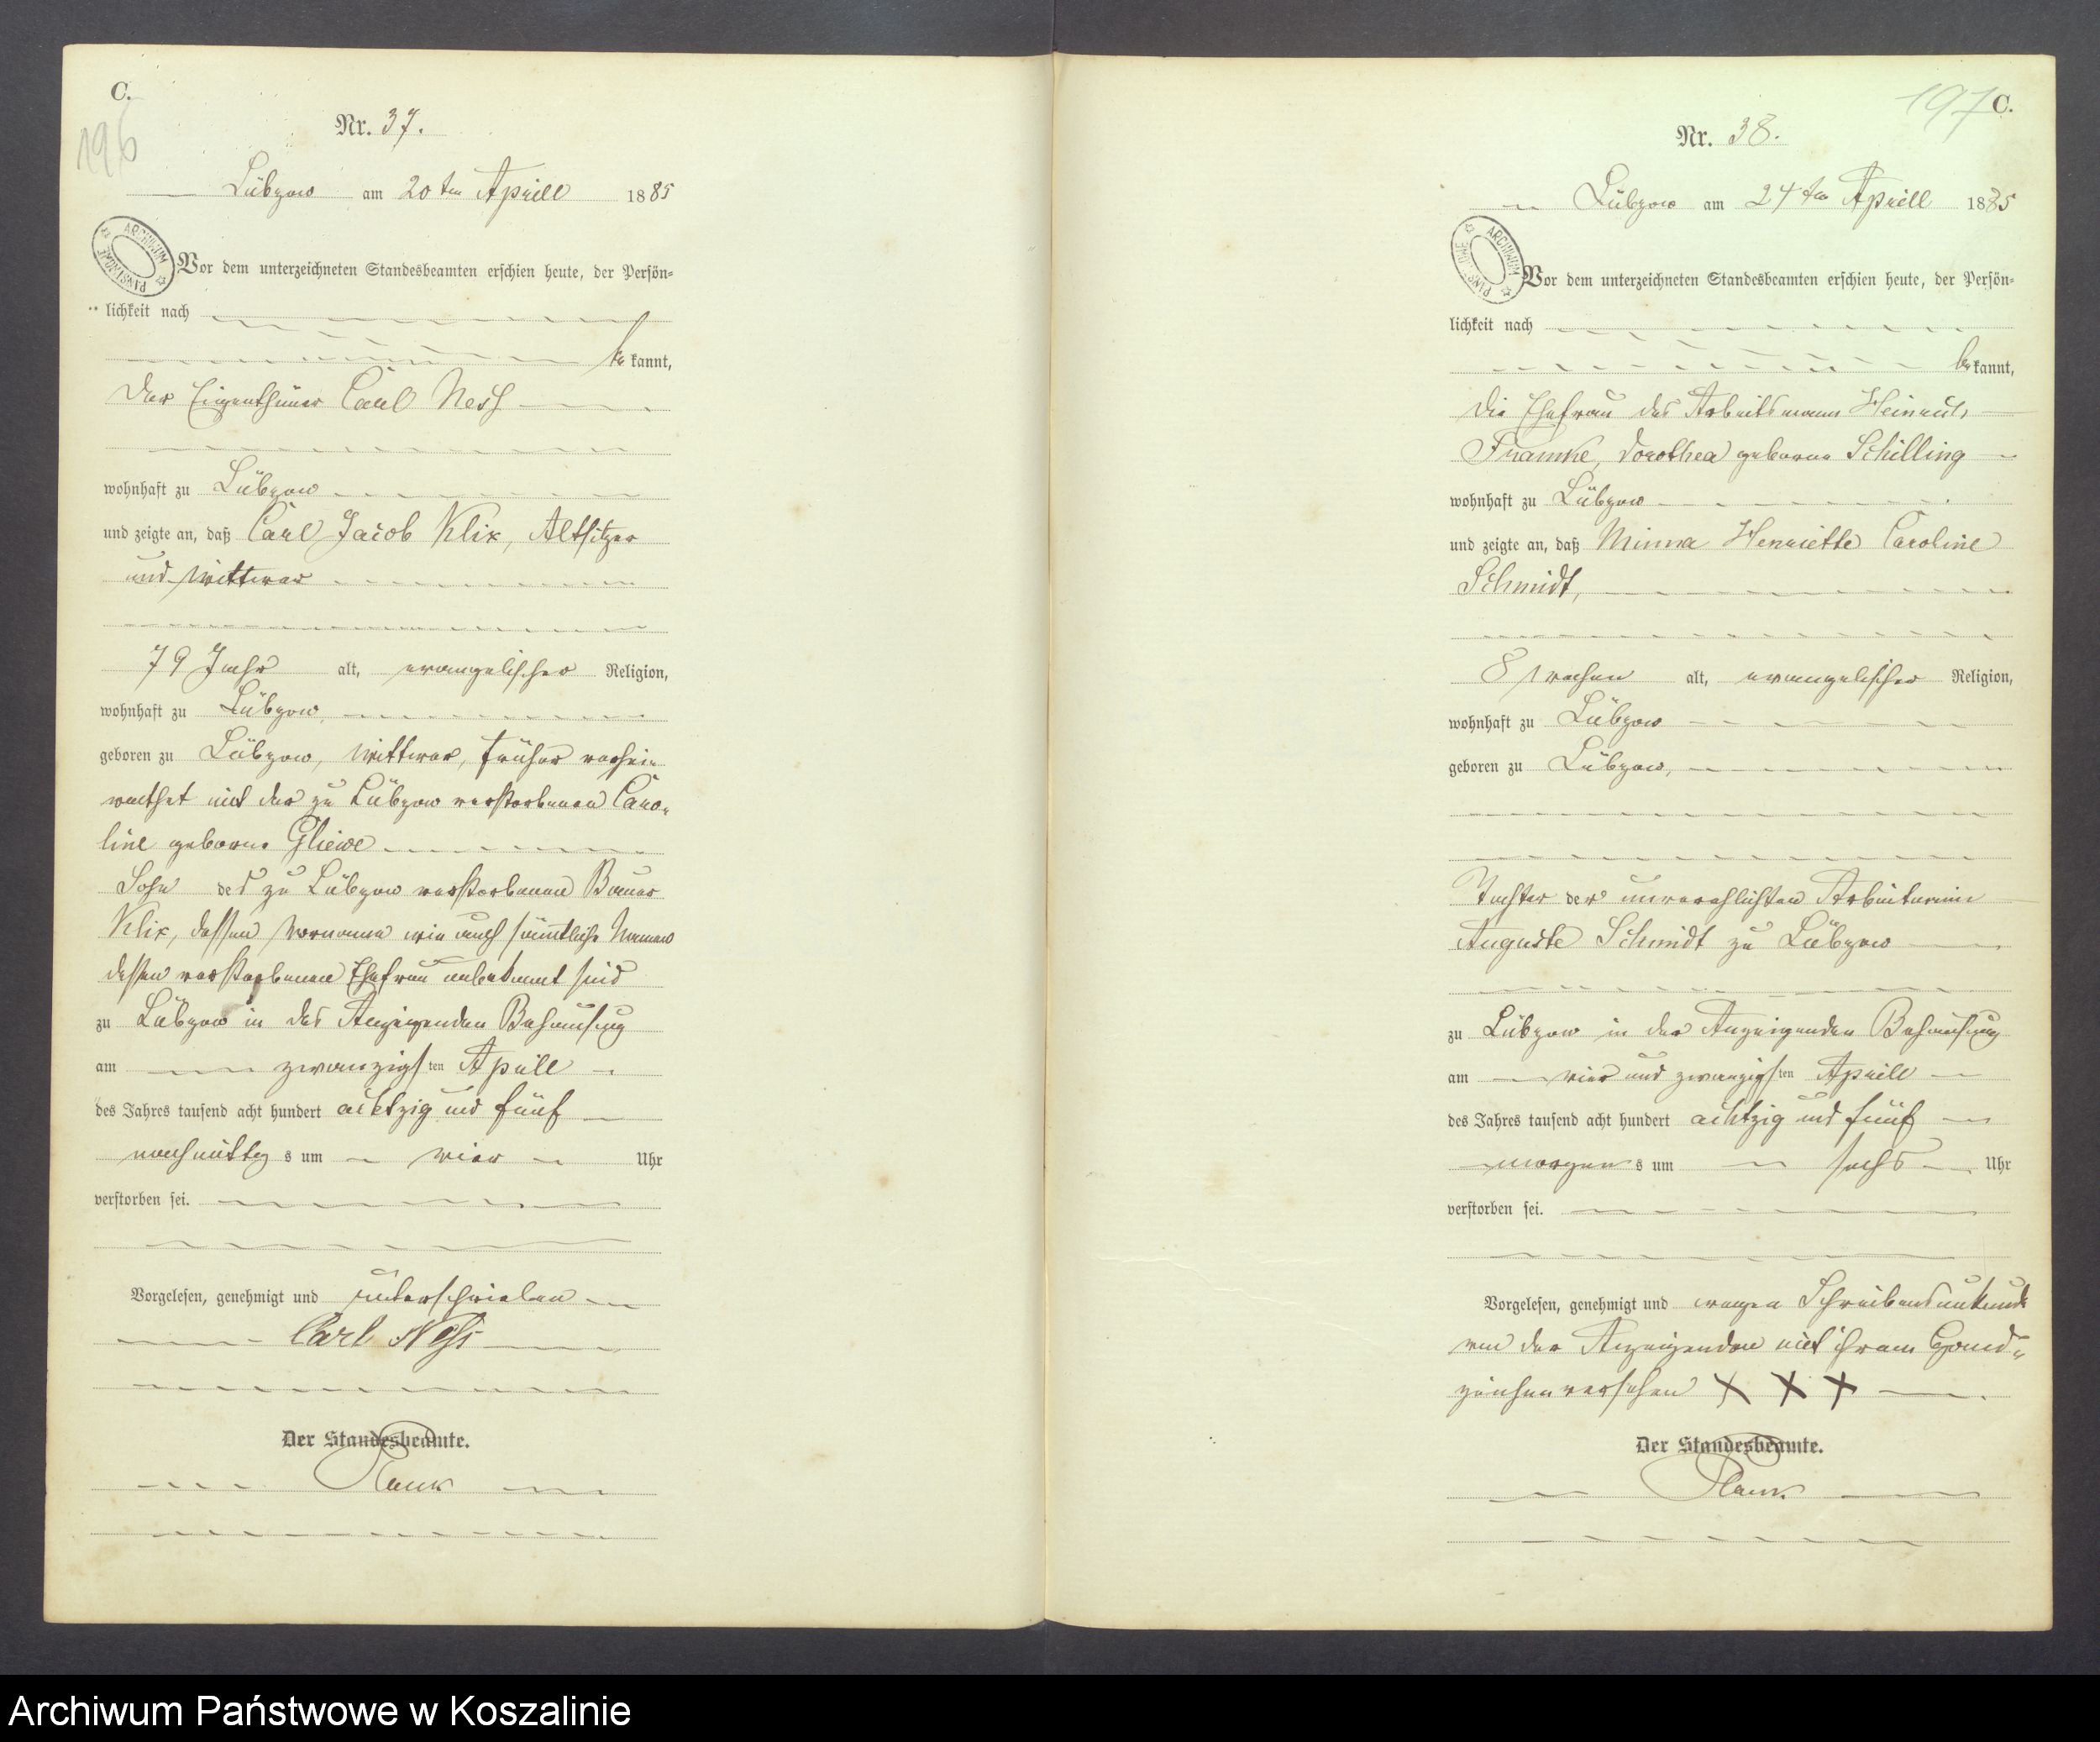 C.
196
Nr. 37.
Lübzow am 20ten Aprill 1885
ARCHIWUM PAŃSTWOWE
Vor dem unterzeichneten Standesbeamten erschien heute, der Persön=
lichkeit nach
bekannt,
der Eigenthümer Carl Ness
wohnhaft zu Lübzow
und zeigte an, daß Carl Jacob Klix, Altsitzer
und Wittwer
79 Jahr alt, evangelischer Religion,
wohnhaft zu Lübzow
geboren zu Lübzow, Wittwer, früher verhei
rathet mit der zu Lübzow verstorbenen Caro-
line geborne Gliewe
Sohn des zu Lübzow verstorbenen Bauer
Klix, dessen Vorname wie auch sämtliche Namen
dessen verstorbenen Ehefrau unbekannt sind
zu Lübzow in des Anzeigenden Behausung
am zwanzigsten Aprill
des Jahres tausend acht hundert achtzig und fünf
nachmittags um vier Uhr
verstorben sei.
Vorgelesen, genehmigt und unterschrieben
Carl Ness
Der Standesbeamte.
197
C.
Nr. 38.
Lübzow am 24ten Aprill 1885
ARCHIWUM PAŃSTWOWE
Vor dem unterzeichneten Standesbeamten erschien heute, der Persön=
lichkeit nach
bekannt,
die Ehefrau des Arbeitsmann Heinrich
Framke, Dorothea geborne Schilling
wohnhaft zu Lübzow
und zeigte an, daß Minna Henriette Caroline
Schmidt,
8 Wochen alt, evangelischer Religion,
wohnhaft zu Lübzow
geboren zu Lübzow,
Tochter der unverehlichten Arbeiterin
Auguste Schmidt zu Lübzow
zu Lübzow in der Anzeigenden Behausung
am vier und zwanzigsten Aprill
des Jahres tausend acht hundert achtzig und fünf
morgens um sechs Uhr
verstorben sei.
Vorgelesen, genehmigt und wegen Schreibensunkunde
von der Anzeigenden mit ihrem Hand-
zeichen versehen X X X
Der Standesbeamte.
Archiwum Państwowe w Koszalinie